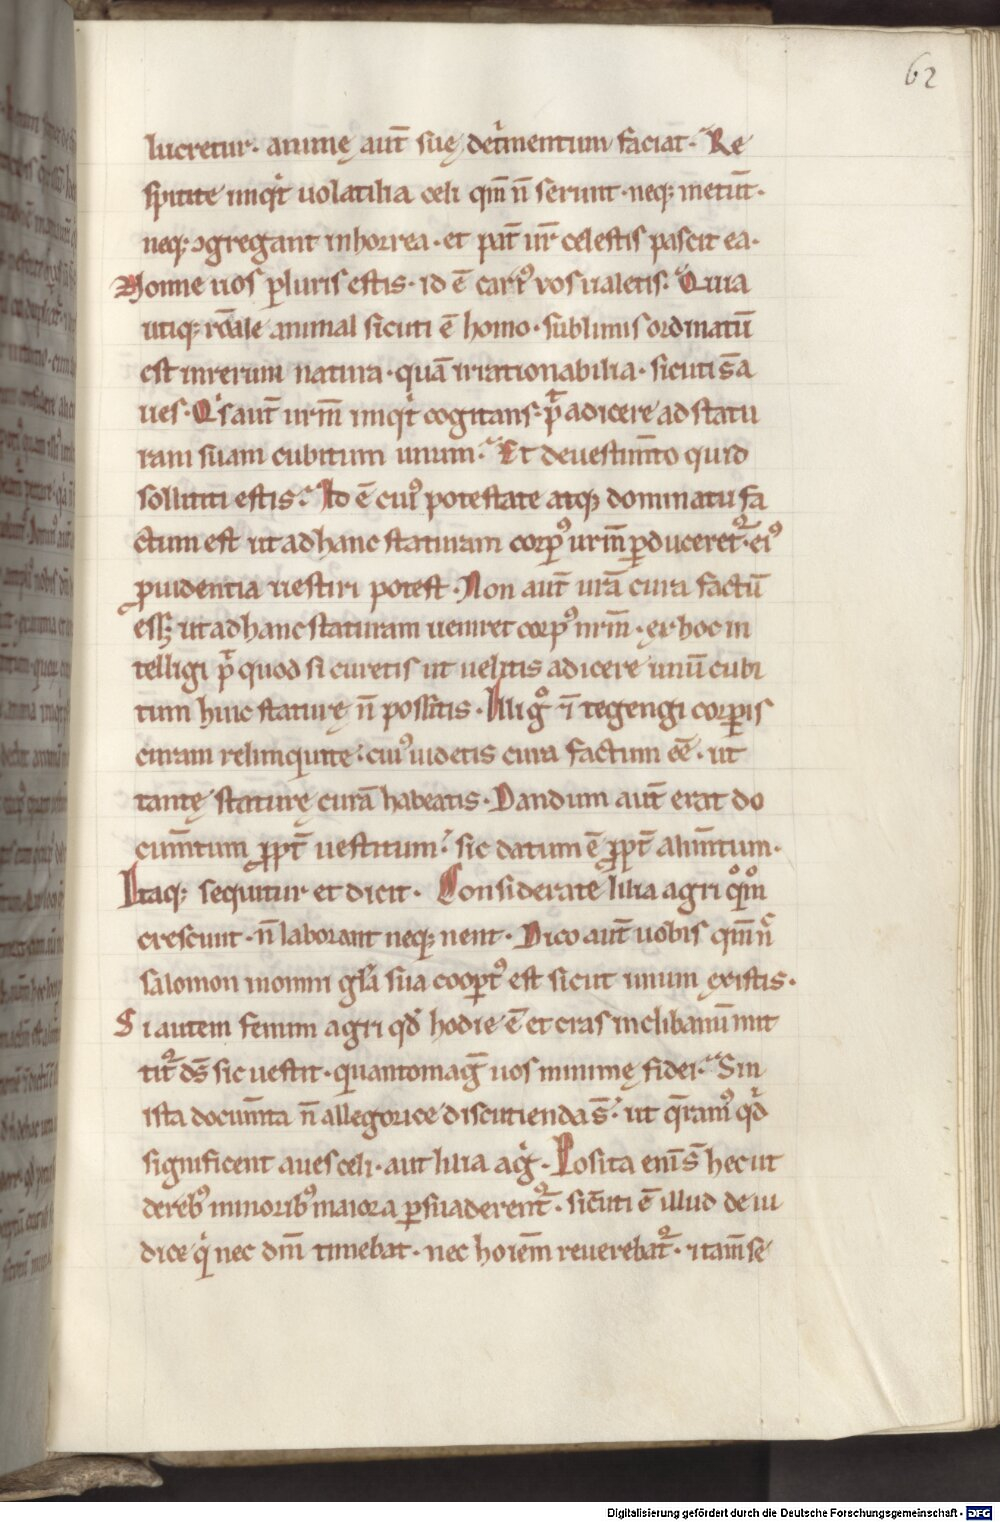 62
lucretur· animę aut̄ suę detͥmentum faciat· Re
spicite inqͥt uolatilia celi qm̄ n̄ serunt· neq; metunt·
neq; ꝯgregant in horrea· et pat̄ ur̄ celestis pascit ea·
Nonne uos pluris estis· id ē cariꝰ uos ualetis· Quia
utiq; rōale animal sicuti ē homo· sublimis ordinatū
est in rerum natura· quā irrationabilia· sicuti s̄ a
ues· Qͥs aut̄ urm̄ inqͥt cogitans pᷓt adicere ad statu
ram suam cubitum unum· Et de uestim̄to quid
solliciti estis· Id ē cuiꝰ potestate atq; dominatu fa
ctum est ut ad hanc staturam corpꝰ urm̄ ꝑducereť· eiꝰ
ꝓuidentia uestiri potest· Non aut̄ urā cura factū
ess; ut ad hanc staturam ueniret corpꝰ urm̄· ex hoc in
telligi pᷓt quod si curetis ut uelitis adicere unū cubi
tum huic staturę n̄ possitis· Illi gͦ ⁊ tegengi corꝑis
curam relinquite· cuiꝰ uidetis cura factum eē· ut
tantę staturę curā habeatis· Dandum aut̄ erat do
cum̄tum ꝓpt̄ uestitum· sic datum ē ꝓpt̄ alim̄tum·
Itaq; sequitur et dicit· Considerate lilia agri qͦmͦ
crescunt· n̄ laborant neq; nent· Dico aut̄ uobis qm̄ nͨ
salomon in omni gl̄a sua cooptꝰ est sicut unum ex istis·
Si autem fenum agri qd̄ hodie ē et cras in clibanū mit
tiť ds̄ sic uestit· quanto maḡ uos minimę fidei· S in
ista docum̄ta n̄ allegorice discutienda s̄· ut qͣramꝰ qͥd
significent aues celi· aut lilia agͥ· Posita enī s̄ hec ut
de rebꝰ minoribꝰ maiora ꝑsuaderenť· sicuti ē illud de iu
dice qͥ nec dm̄ timebat· nec hoīem reuerebať· ⁊ tam̄ se
Digitalisierung gefördert durch die Deutsche Forschungsgemeinschaft - DFG